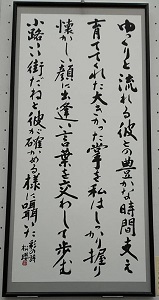 ゆっくりと流れる彼との豊かな時間支え
育ててくれた大きかった掌を私はしっかり握り
懐かしい顔に出逢い言葉を交わして歩む
小路いい街だねと彼が確かめる様に囁いた
彩の詩